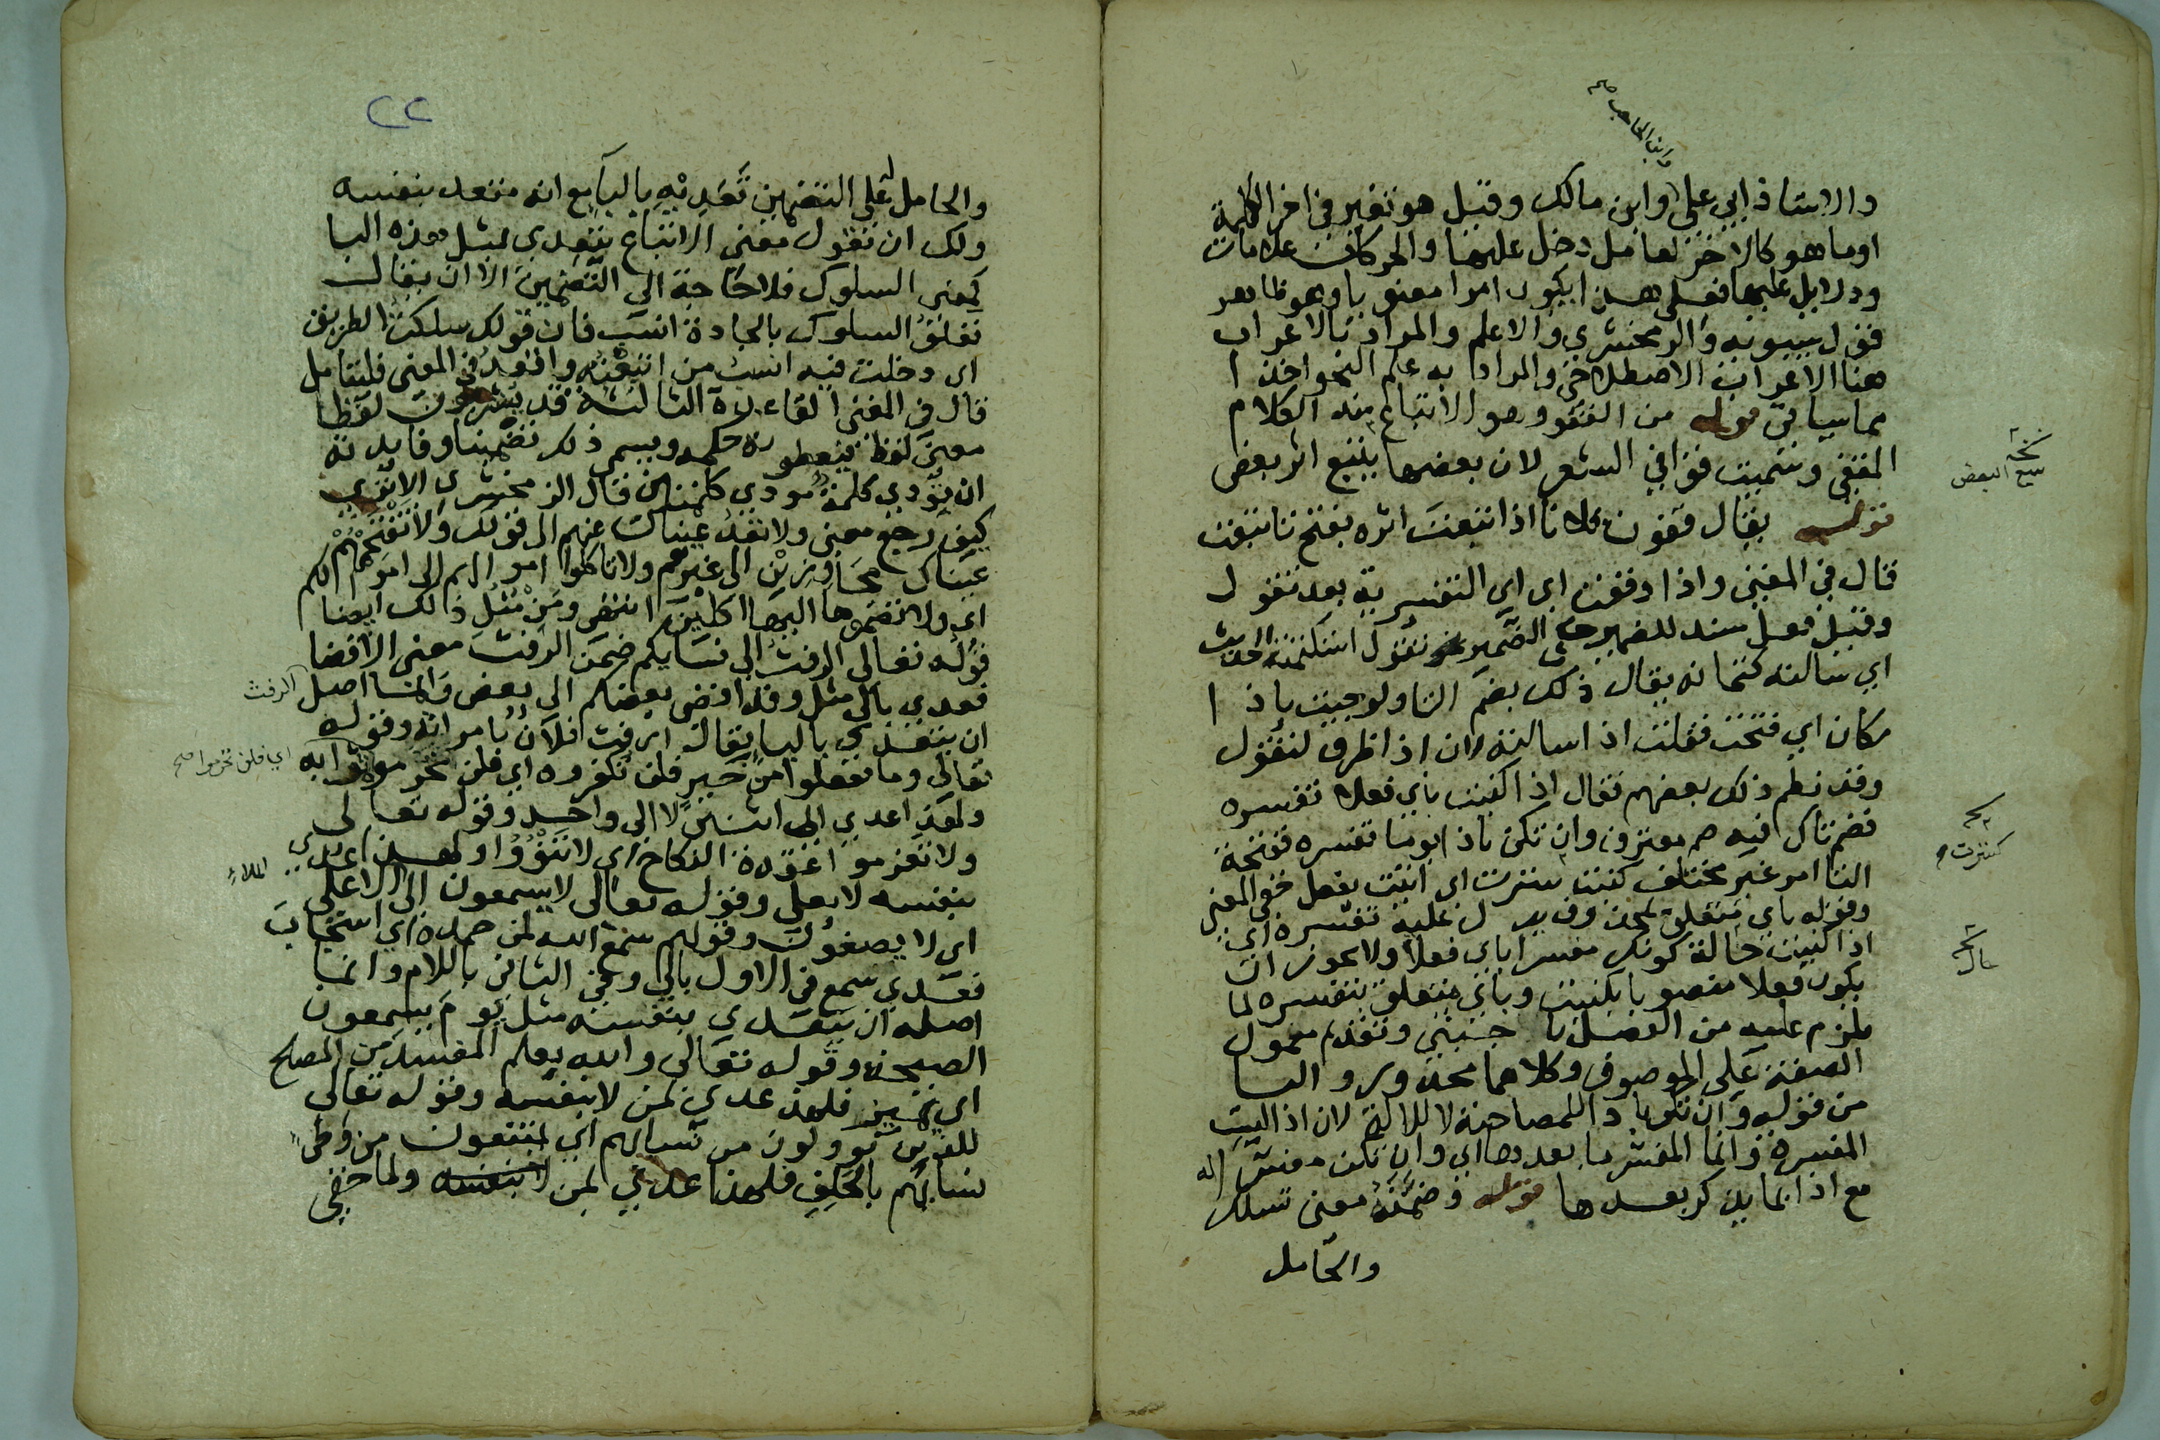 وابن الحاجب صح
والاستاذ ابي علي وابن مالك وقيل هو تغير في اخر الكلمة
او ما هو كالاخر لعامل دخل عليها والحركات علامات
ودلايل عليها فعلى هذا يكون امرا معنويا وهو ظاهر
قول سيبويه والزمخشري والاعلم والمراد بالاعراب
هنا الاعراب الاصطلاحي والمراد به علم النحو اخذا
مما سياتي قوله من القفو وهو الاتباع منه الكلام
المقفى وسميت قوافي الشعر لان بعضها يتبع اثر بعض
نخة
تتبع البعض
قوله يقال قفوت فلانا اذا اتبعت اثره بفتح تا اتبعت
قال في المغني واذا وقعت اي اي التفسيرية بعد تقول
وقبل فعل مسند للضمير حكي الضمير نحو تقول استكتمته الحديث
اي سالته كتمانه يقال ذلك بضم التا ولو جيت باذا
مكان اي فتحت فقلت اذا سالته لان اذا ظرف لتقول
وقد نظم ذلك بعضهم فقال اذا كنيت باي فعلا تفسره
فضم تاك فيه ضم معترف وان تكن باذا يوما تفسره ففتحة
التا امر غير مختلف كنيت سترت اي اتيت بفعل خفي المعنى
نخ
سترت
وقوله باي متعلق بمحذوف يدل عليه تفسره اي
اذا كنيت حالة كونك مفسرا باي فعلا ولا يجوز ان
نخ
حال
يكون فعلا منصوبا بكنيت وباي متعلق بتفسره لما
يلزم عليه من الفصل باجنبي وتقدم معمول
الصفة على الموصوف وكلاهما محذور والبا
من قوله وان تكن باذا للمصاحبة لا للالة لان اذا ليست
المفسرة وانما المفسر ما بعدها اي وان تكن مفسرا له
مع اذا انما يذكر بعدها قوله وضمنه معنى تسلك
والحامل
٢٢
والحامل له على التضمين تعديته بالبا مع انه متعد بنفسه
ولك ان تقول معنى الاتباع يتعدى بمثل هذه البا
كمعنى السلوك فلا حاجة الى التضمين الا ان يقال
تعلق السلوك بالجادة انسب فان قولك سلكت الطريق
اي دخلت فيه انسب من اتبعته واقعد في المعنى فليتامل
قال في المغني القاعدة الثالثة قد يشربون لفظا
معنى لفظ فيعطونه حكمه ويسمى ذلك تضمينا وفايدته
ان تؤدي كلمة مودي كلمتين قال الزمخشري الا ترى
كيف رجع معنى ولا تعد عيناك عنهم الى قولك ولا تقتحمهم
عيناك مجاوزتين الى غيرهم ولا تاكلوا اموالهم الى اموالكم
اي ولا تضموها اليها اكلين انتهى ومن مثل ذلك ايضا
قوله تعالى الرفث الى نسايكم ضمن الرفث معنى الافضا
فعدي بالى مثل وقد افضى بعضكم الى بعض وانما اصل الرفث
ان يتعدى بالبا يقال ارفث فلان بامراته وقوله
تعالى وما تفعلوا من خير فلن تكفروه اي فلن تحرموا ثوابه
اي فلن تحرموا صح
ولهذا عدي الى اثنين لا الى واحد وقوله تعالى
ولا تعزموا عقدة النكاح اي لا تنووا ولهذا عدي
بنفسه لا بعلى وقوله تعالى لا يسمعون الى الملاء الاعلى
اي لا يصغون وقولهم سمع الله لمن حمده اي استجاب
فعدي سمع في الاول بالى وفي الثاني باللام وانما
اصله ان يتعدى بنفسه مثل يوم يسمعون
الصيحة وقوله تعالى والله يعلم المفسد من المصلح
اي يميز فلهذا عدي بمن لا بنفسه وقوله تعالى
للذين يوولون من نسائهم اي يمتنعون من وطئ
نسائهم بالحلف فلهذا عدي بمن لا بنفسه ولما خفي